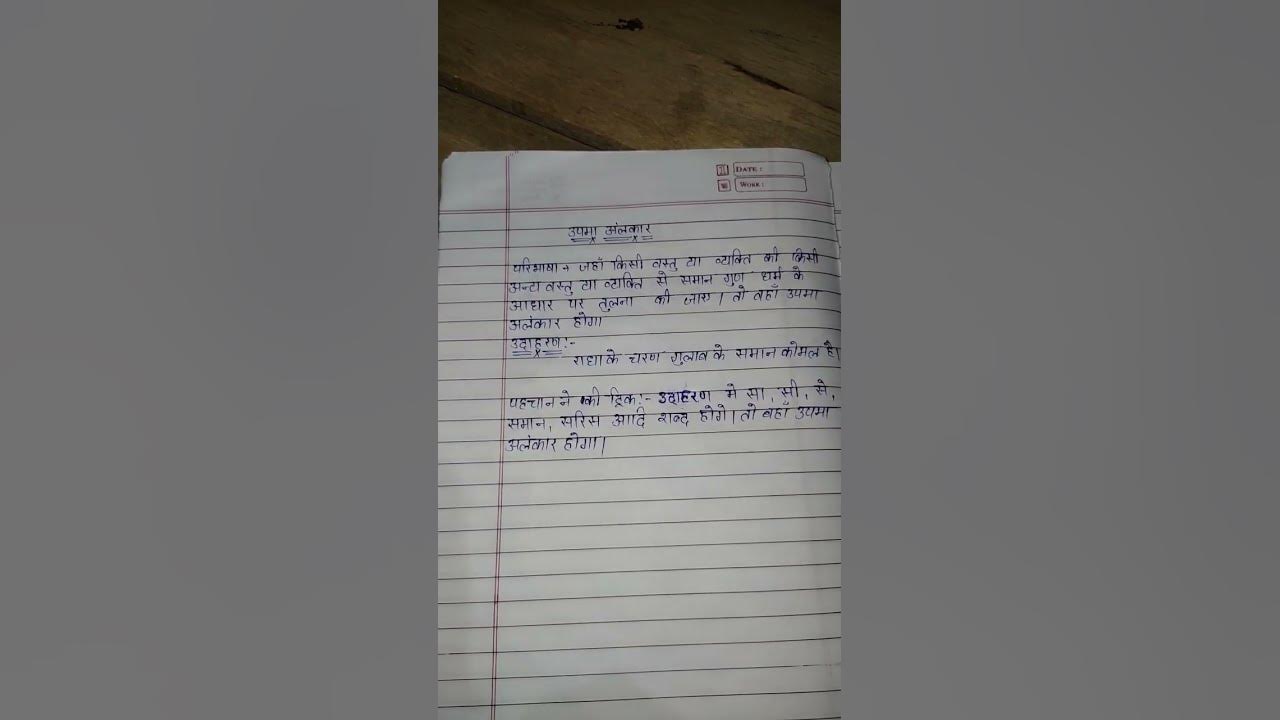 DATE :
WORK :
उपमा अंलकार
परिभाषा → जहाँ किसी वस्तु या व्यक्ति की किसी
अन्य वस्तु या व्यक्ति से समान गुण धर्म के
आधार पर तुलना की जाए। तो वहाँ उपमा
अलंकार होगा
उदाहरण:-
राधा के चरण गुलाब के समान कोमल है।
पहचान ने की ट्रिक:- उदाहरण मे सा, सी, से,
समान, सरिस आदि शब्द होगे। तो वहाँ उपमा
अलंकार होगा।